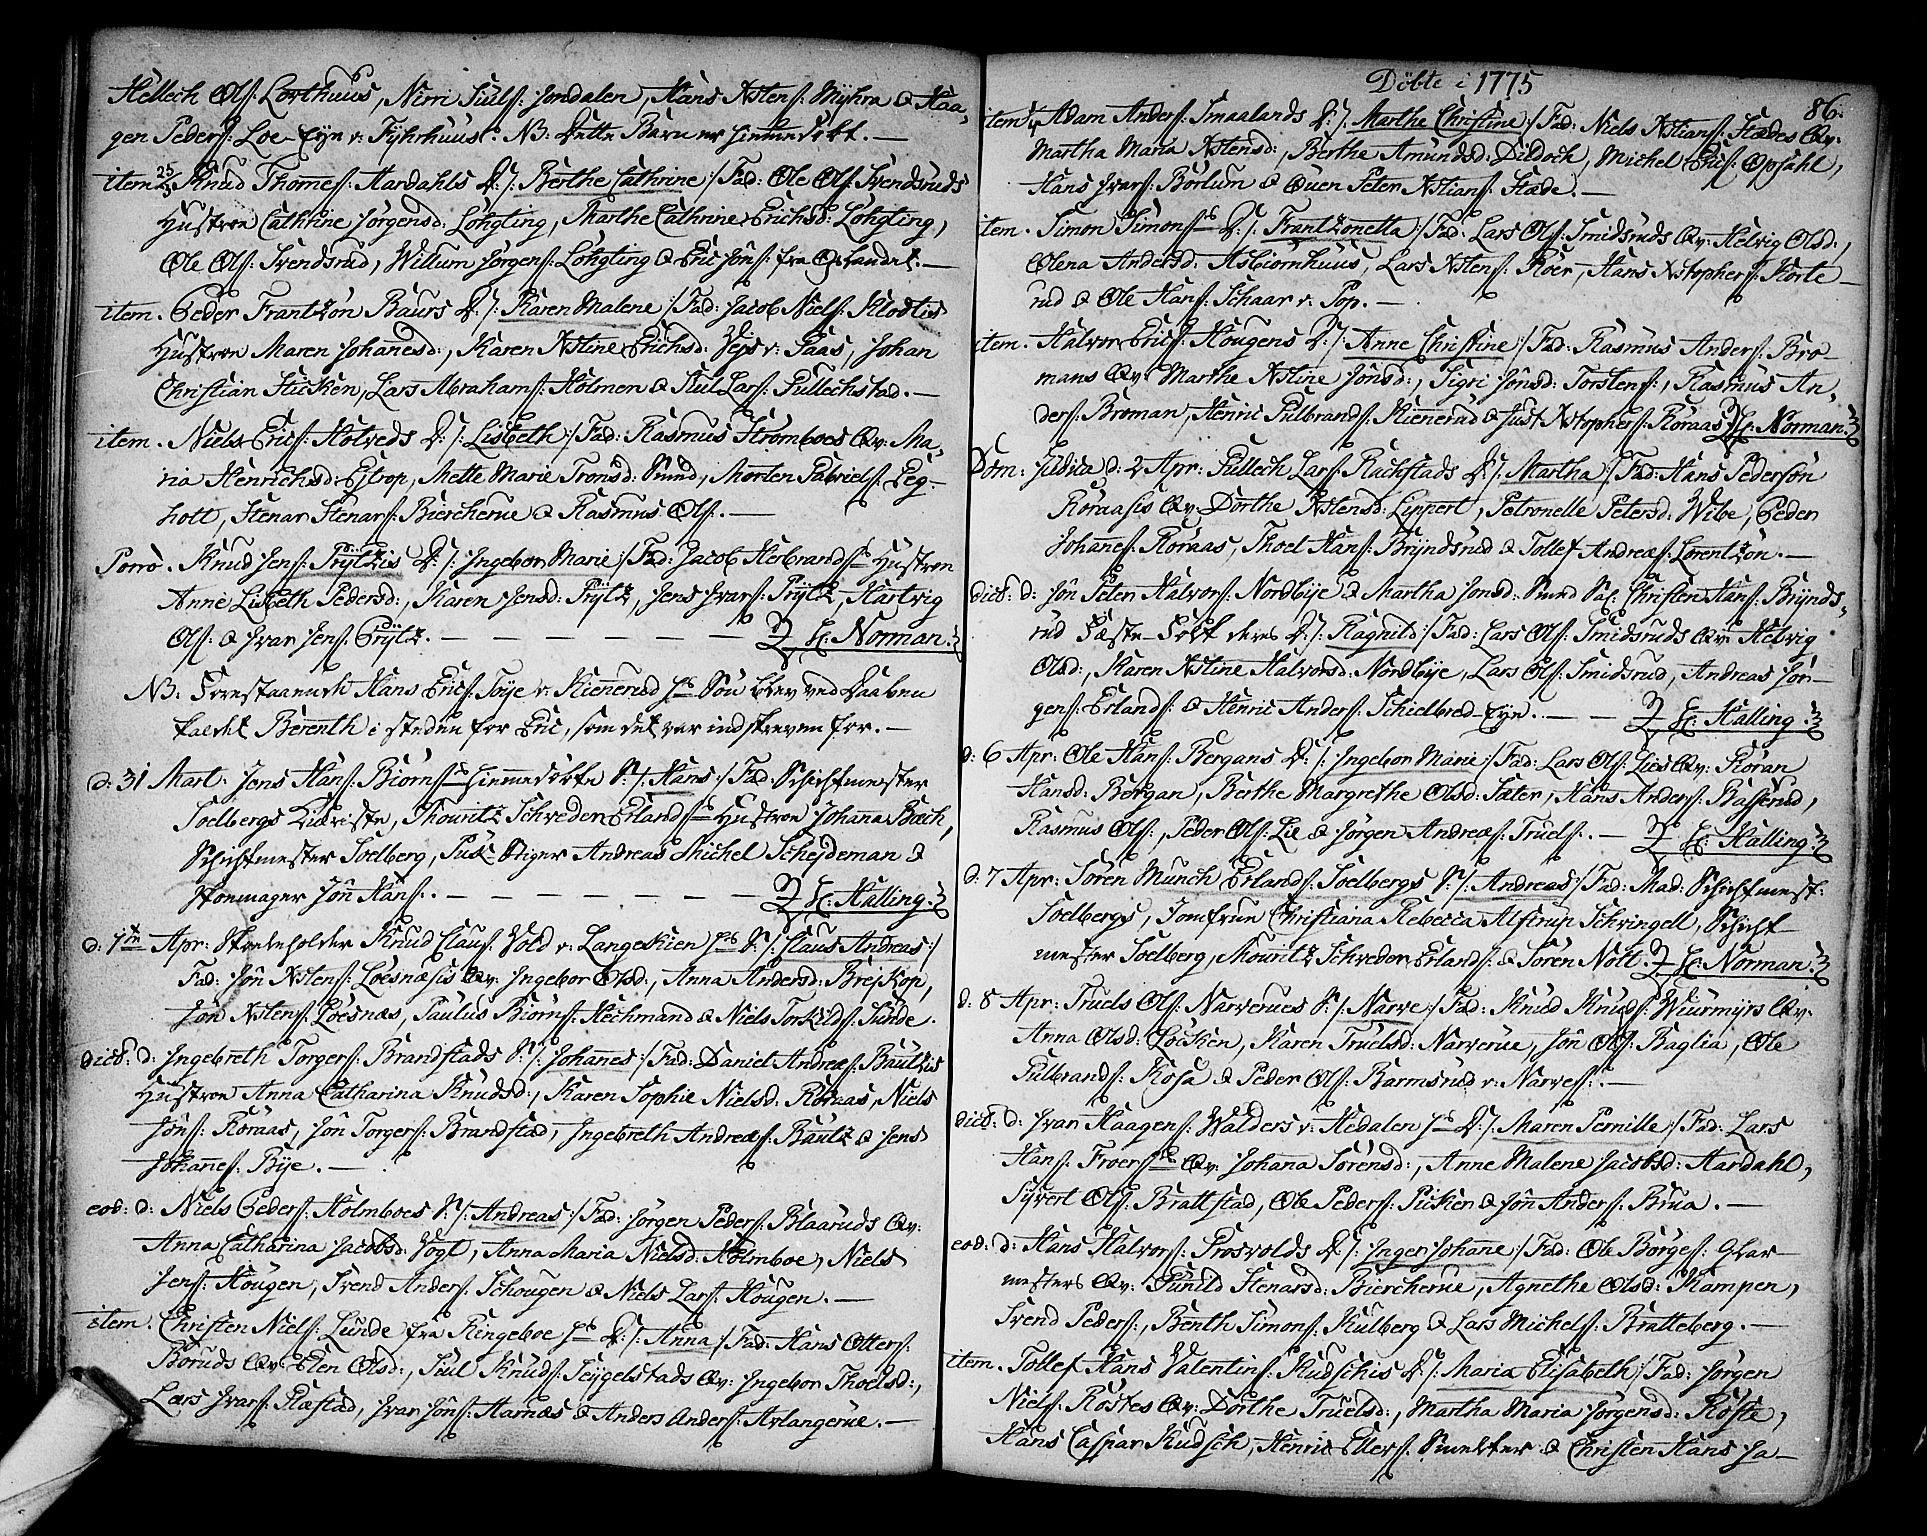 Hellech Ols: Lorthuus, Nirri Juls: Jondalen, Hans Xstens: Myhra & Haa-
gen Peders: Loe-Eyn v. Fyhrhuus. NB: Dette Barn er hiemmedøbt.—
item 25 Knud Thomes: Aardahls D:/: Berthe Cathrine :/ Fad: Ole Ols: Svendsruds
Hustroe Cathrine Jørgensd: Løhgting, Marthe Cathrine Erichsd: Løhgting,
Ole Ols: Svendsrud, Willum Jørgens: Løhgting & Eric Jöns: fra Oplandet.—
item. Peder Frantzön Baurs D:/: Karen Malene :/ Fad: Jacob Niels: Klodtis
Hustroe Maren Johanesd:, Karen Xstine Erichsd: Veys v: Saas, Johan
Christian Stücken, Lars Abrahams: Holmen & Juul Lars: Gullechstad.—
item. Niels Erics: Hotveds D:/: Lisbeth :/ Fad: Rasmus Strømboes Qv: Ma-
ria Henrichsd: Estrop, Mette Marie Tronsd: Smed, Morten Gabriels: Leg-
hott, Stenar Stenars: Biercherue & Rasmus Ols:.—
Porro. Knud Jens: Prÿtzis D:/: Ingebor Marie :/ Fad: Jacob Herbrands: Hustroe
Anne Lisbeth Pedersd:, Karen Jensd: Prÿtz, Jens Ivars: Prÿtz, Hartvig
Ols: & Ivar Jens: Prÿtz.— — — — — H: Norman.
NB: Forestaaende Hans Erics: Toye v: Kiennerud hs Søn blev ved Daaben
kaldet Berenth i steden for Eric, som det var indskreven for.—
d: 31 Mart: Jens Hans: Biørns: hiemmedøbte S:/: Hans :/ Fad: Schichtmester
Soelbergs Kiæriste, Mouritz Schreder Erlands: Hustroe Johana Bæch,
Schichtmester Soelberg, Stiger Andreas Michel Scheydeman &
Skomager Jön Hans:.— — — — — H: Halling.
d: 1ste Apr: Skoleholder Knud Claus: Vold v: Langeskien hs S:/: Claus Andreas :/
Fad: Jön Xstens: Loesnæsis Qv: Ingebor Olsd:, Anna Andersd: Breskop,
Jön Xstens: Loesnæs, Paulus Biørns: Hechmand & Niels Torkilds: Sunde.
dict: d: Ingebreth Torgers: Brandstads S:/: Johanes :/ Fad: Daniel Andreæs: Bautzis
Hustroe Anna Catharina Knudsd:, Karen Sophie Nielsd: Roraas, Niels
Jöns: Roraas, Jön Torgers: Brandstad, Ingebreth Andreæs: Bautz & Jens
Johanes: Bye.—
eod: d: Niels Peders: Holmboes S:/: Andreas :/ Fad: Jørgen Peders: Blaaruds Qv:
Anna Catharina Jacobsd: Vogt, Anna Maria Nielsd: Holmboe, Niels
Jens: Hougen, Svend Anders: Schougen & Niels Lars: Hougen.—
item. Christen Niels: Lunde fra Ringeboe hs D:/: Anna :/ Fad: Hans Otters:
Boruds Qv: Elen Olsd:, Juul Knuds: Teygelstads Qv: Ingebor Thoelsd:,
Lars Ivars: Ræstad, Ivar Jöns: Aarnæs & Anders Anders: Avlangerue.—
Döbte i 1775
86.
item. Adam Anders: Smaalands D:/: Marthe Christine :/ Fad: Niels Xstians: Stædes Qv:
Martha Maria Xstensd:, Berthe Amundsd: Dildoch, Michel Erics: Opsahl,
Hans Ivars: Borlum & Ouen Peter Xstians: Stæde.—
item. Simon Simons: D:/: Frantzonetta :/ Fad: Lars Ols: Smidsruds Qv: Helvig Olsd:,
Olena Andersd: Asbiørnhuus, Lars Xstens: Roer, Hans Xstophers: Korte-
rud & Ole Hans: Schaar v: Pop.—
item. Halvor Erics: Hougens D:/: Anne Christine :/ Fad: Rasmus Anders: Bro-
mans Qv: Marthe Xstine Jönsd:, Sigri Jönsd: Torstens:, Rasmus An-
ders: Broman, Henric Gulbrands: Kiennerud & Just Xstophers: Roraas. H: Norman.
Dom: Judica d: 2 Apr: Gullech Lars: Rachstads D:/: Martha :/ Fad: Hans Pedersön
Roraasis Qv: Dorthe Xstensd: Lippert, Petronelle Petersd: Wibe, Peder
Johanes: Roraas, Thoel Hans: Bryndsrud & Tollef Andreæs: Lorentzön.—
dict: d: Jön Peter Halvors: Nordbÿe & Martha Jonsd: Smed Sal: Christen Hans: Brynds-
rud Fæste-Folk deres D:/: Ragnild :/ Fad: Lars Ols: Smidsruds Qv: Helvig
Olsd:, Karen Xstine Halvorsd: Nordbÿe, Lars Ols: Smidsrud, Andreas Jør-
gens: Erlands: & Henric Anders: Schielbred-Eyn.— — H: Halling.
d: 6 Apr: Ole Hans: Bergans D:/: Ingebor Marie :/ Fad: Lars Ols: Lies Qv: Röran
Hansd: Bergan, Berthe Margrethe Olsd: Sæter, Hans Anders: Basserud,
Rasmus Ols:, Peder Ols: Lie & Jørgen Andreæs: Truels:.— H: Halling.
d: 7 Apr: Søren Munch Erlands: Soelbergs S:/: Andreas :/ Fad: Mad: Schichtmest:
Soelbergs, Jomfrue Christiana Rebecca Alstrup Schvingell, Schicht-
mester Soelberg, Mouritz Schreder Erlands: & Søren Nött. H: Norman.
d: 8 Apr: Truels Ols: Narverues S:/: Narve :/ Fad: Knud Knuds: Wiurmyrs Qv:
Anna Olsd: Løcken, Karen Truelsd: Narverue, Jön Ols: Baglia, Ole
Gulbrands: Kosa & Peder Ols: Barmsrud v: Narves:.—
dict: d: Ivar Haagens: Walders v: Hedalen hs D:/: Maren Pernille :/ Fad: Lars
Hans: Froers: Qv: Johana Sørensd:, Anne Malene Jacobsd: Aardahl,
Syvert Ols: Brattstad, Ole Peders: Picken & Jön Anders: Brua.—
eod: d: Hans Halvors: Grosvolds D:/: Inger Johanne :/ Fad: Ole Börges: Glar-
mesters Qv: Gunild Stenarsd: Biercherue, Agnethe Olsd: Kampen,
Svend Peders:, Benth Simons: Kulberg & Lars Michels: Bratteberg.—
item. Tollef Hans Valentins: Kudschis D:/: Maria Elisabeth :/ Fad: Jørgen
Niels: Kostes Qv: Dorthe Truelsd:, Martha Maria Jørgensd: Koste,
Hans Caspar Kudsch, Henric Ellers: Smelter & Christen Hans: Ja-